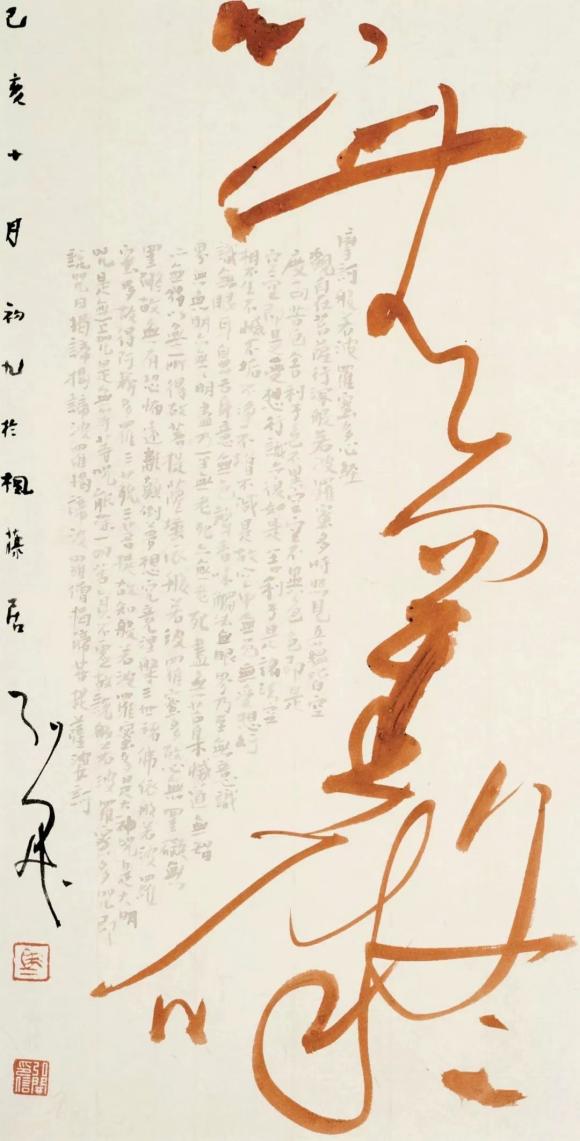 心無罣礙
摩訶般若波羅蜜多心經
觀自在菩薩行深般若波羅蜜多時照見五蘊皆空
度一切苦厄舍利子色不異空空不異色色即是
空空即是色受想行識亦復如是舍利子是諸法空
相不生不滅不垢不淨不增不減是故空中無色無受想行
識無眼耳鼻舌身意無色聲香味觸法無眼界乃至無意識
界無無明亦無無明盡乃至無老死亦無老死盡無苦集滅道無智
亦無得以無所得故菩提薩埵依般若波羅蜜多故心無罣礙無
罣礙故無有恐怖遠離顛倒夢想究竟涅槃三世諸佛依般若波羅
蜜多故得阿耨多羅三藐三菩提故知般若波羅蜜多是大神咒是大明
咒是無上咒是無等等咒能除一切苦真實不虛故說般若波羅蜜多咒即
說咒曰揭諦揭諦波羅揭諦波羅僧揭諦菩提薩婆訶
己亥十月初九於楓藤居